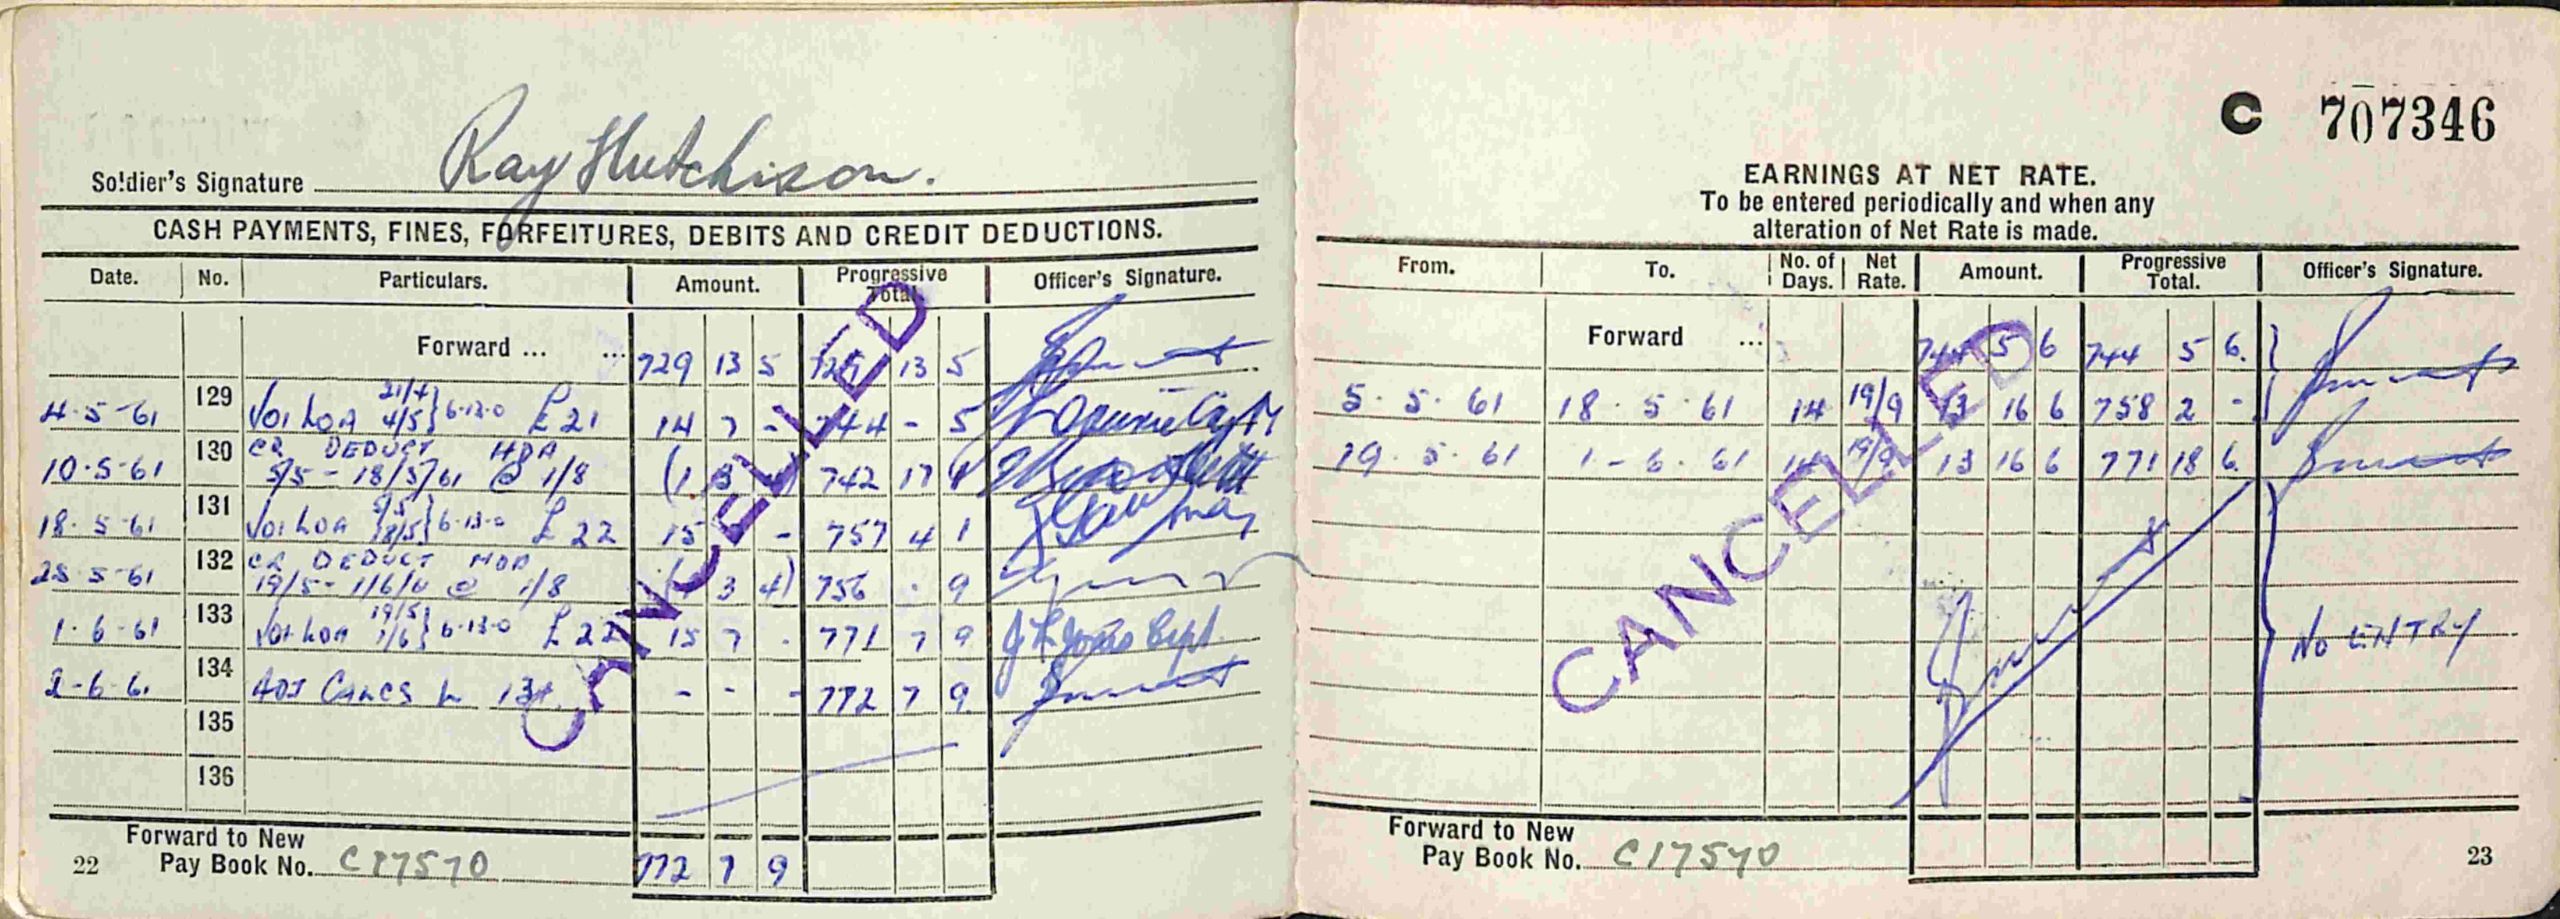 Ray Hutchison.
Soldier's Signature
CASH PAYMENTS, FINES, FORFEITURES, DEBITS AND CREDIT DEDUCTIONS.
Date. No. Particulars. Amount. Progressive Total. Officer's Signature.
Forward ... ... 729 13 5 729 13 5
4-5-61 129 Vol LOA 21/4 4/5 } 6-13-0 £21 14 7 - 744 - 5
10.5.61 130 CR DEDUCT HDA 5/5 - 18/5/61 @ 1/8 (1 3 742 17 1
18.5.61 131 Vol LOA 5/5 18/5 } 6-13-0 £22 15 - 757 4 1
25.5.61 132 CR DEDUCT 19/5 - 1/6/6 @ 1/8 ( 3 4) 756 . 9
1.6.61 133 Vol LOA 19/5 1/6 } 6-13-0 £22 15 7 - 771 7 9 Capt.
2-6-61 134 ADJ 134 - - - 772 7 9
135
136
Forward to New
Pay Book No. C17570 772 7 9
22
CANCELLED
C 707346
EARNINGS AT NET RATE.
To be entered periodically and when any
alteration of Net Rate is made.
From. To. No. of Days. Net Rate. Amount. Progressive Total. Officer's Signature.
Forward ... 744 5 6 744 5 6.
5.5.61 18.5.61 14 19/9 13 16 6 758 2 -
19.5.61 1-6.61 14 19/9 13 16 6 771 18 6.
No ENTRY
Forward to New
Pay Book No. C17570
23
CANCELLED